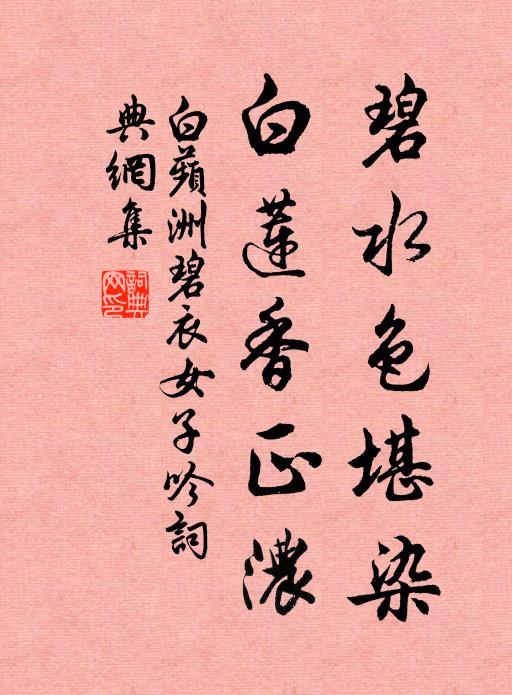 碧水色堪染
白蓮香正濃
白蘋洲碧衣女子吟詞
典網集
詞典网印